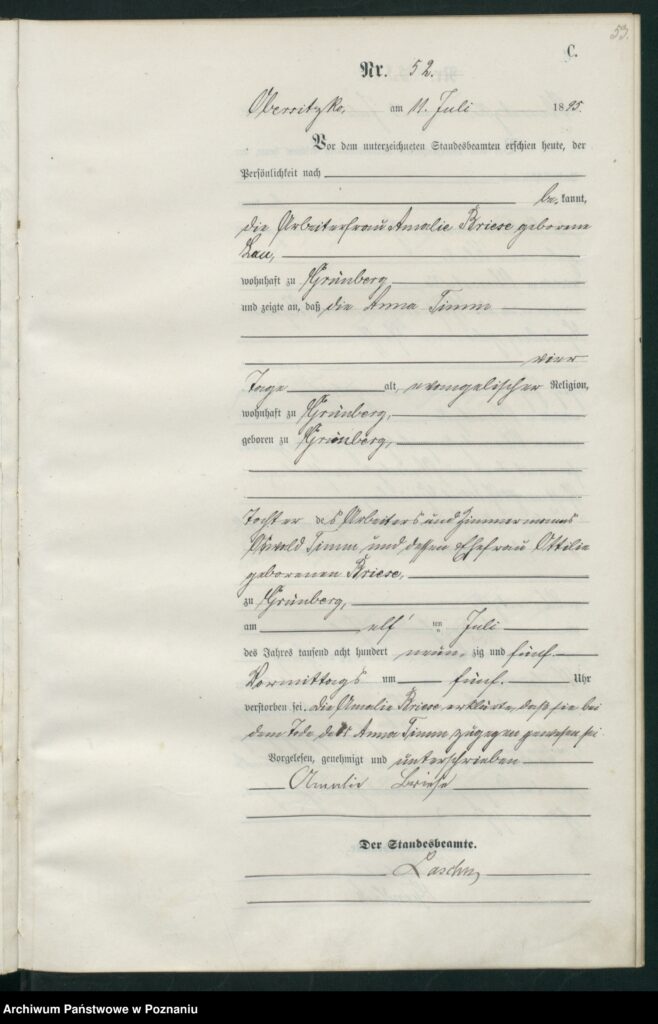 53.
C.
Nr. 52.
Obersitzko, am 11. Juli 1895.
Vor dem unterzeichneten Standesbeamten erschien heute, der
Persönlichkeit nach
be kannt,
die Arbeiterfrau Amalie Briese geborene
Lau,
wohnhaft zu Grünberg
und zeigte an, daß die Anna Timm
vier
Tage alt, evangelischer Religion,
wohnhaft zu Grünberg,
geboren zu Grünberg,
Tochter des Arbeiters und Zimmermanns
Oswald Timm und dessen Ehefrau Ottilie
geborenen Briese,
zu Grünberg,
am elf ten Juli
des Jahres tausend acht hundert neun zig und fünf
Vormittags um fünf Uhr
verstorben sei. Die Amalie Briese erklärte, daß sie bei
dem Tode der Anna Timm zugegen gewesen sei
Vorgelesen, genehmigt und unterschrieben
Amalie Briese
Der Standesbeamte.
Archiwum Państwowe w Poznaniu